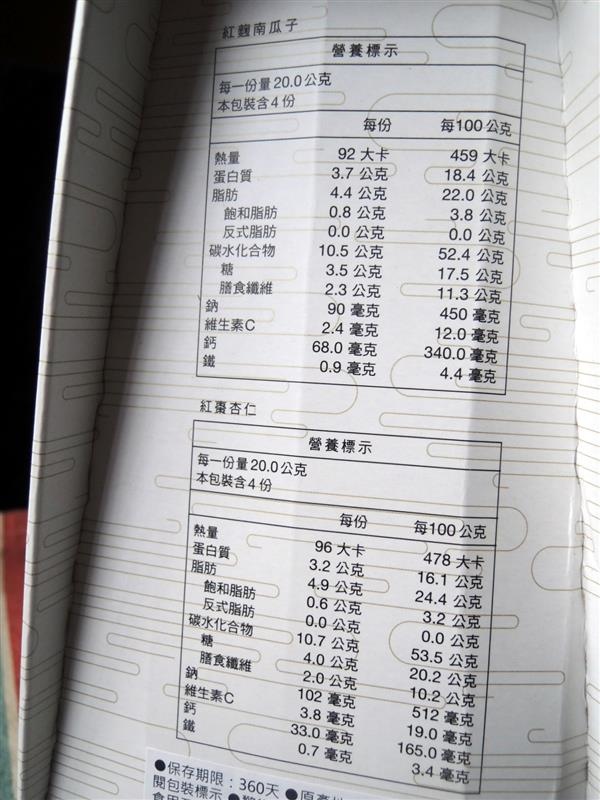 紅麴南瓜子
營養標示
每一份量 20.0 公克
本包裝含 4 份
每份 每100公克
熱量 92 大卡 459 大卡
蛋白質 3.7 公克 18.4 公克
脂肪 4.4 公克 22.0 公克
飽和脂肪 0.8 公克 3.8 公克
反式脂肪 0.0 公克 0.0 公克
碳水化合物 10.5 公克 52.4 公克
糖 3.5 公克 17.5 公克
膳食纖維 2.3 公克 11.3 公克
鈉 90 毫克 450 毫克
維生素C 2.4 毫克 12.0 毫克
鈣 68.0 毫克 340.0 毫克
鐵 0.9 毫克 4.4 毫克
紅棗杏仁
營養標示
每一份量 20.0 公克
本包裝含 4 份
每份 每100公克
熱量 96 大卡 478 大卡
蛋白質 3.2 公克 16.1 公克
脂肪 4.9 公克 24.4 公克
飽和脂肪 0.6 公克 3.2 公克
反式脂肪 0.0 公克 0.0 公克
碳水化合物 10.7 公克 53.5 公克
糖 4.0 公克 20.2 公克
膳食纖維 2.0 公克 10.2 公克
鈉 102 毫克 512 毫克
維生素C 3.8 毫克 19.0 毫克
鈣 33.0 毫克 165.0 毫克
鐵 0.7 毫克 3.4 毫克
●保存期限：360天 ●原產地
閱包裝標示 ●